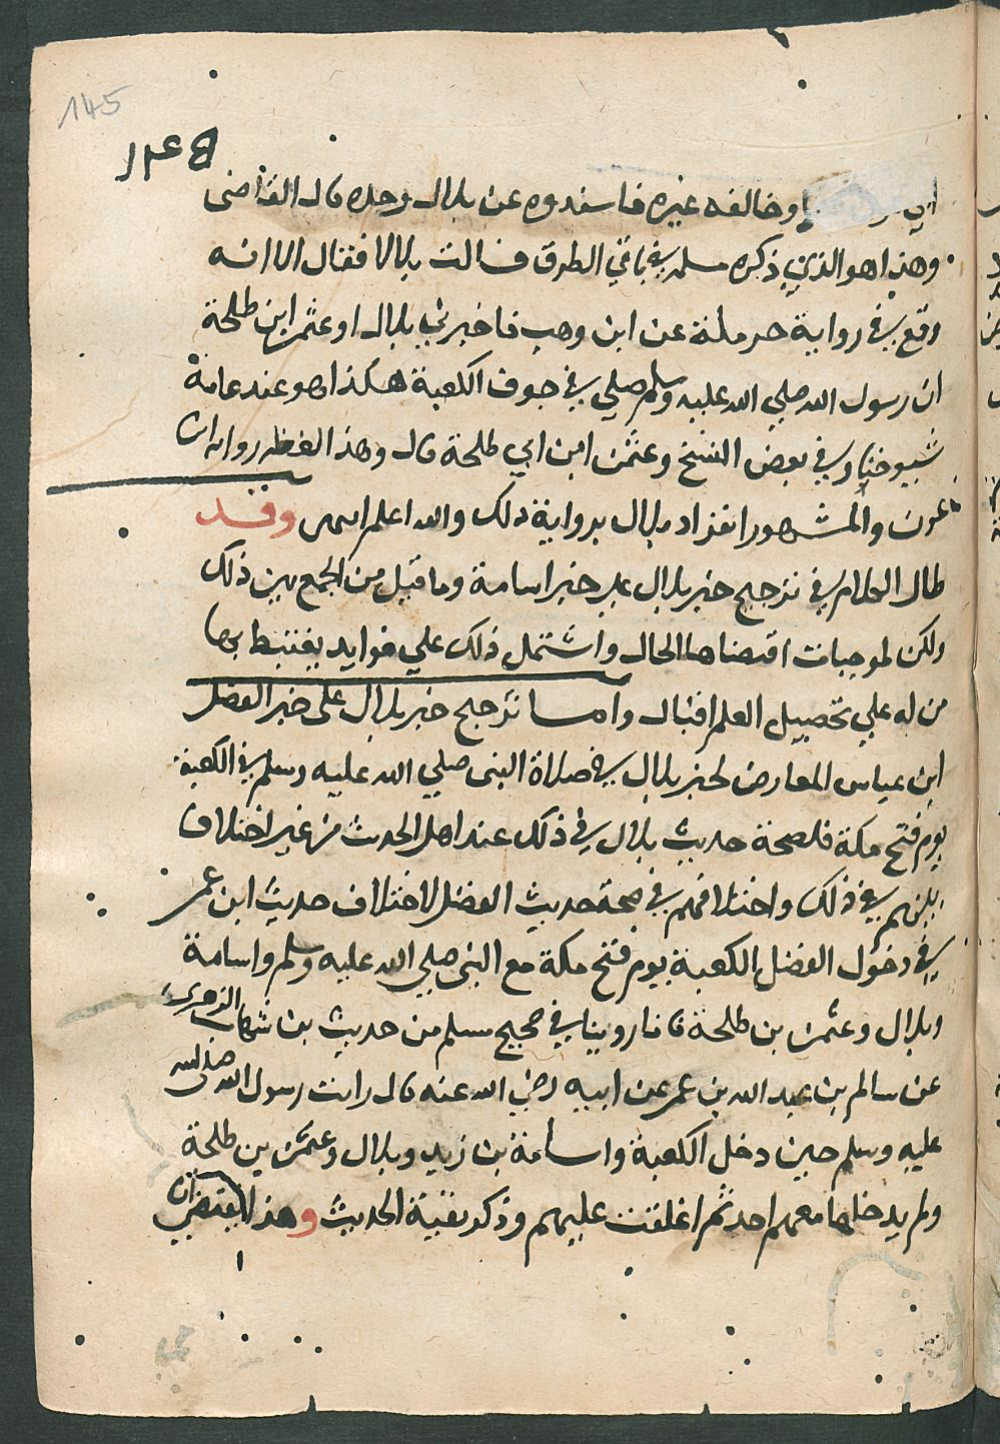 145
وخالفه غيره فاسندوه عن بلال وحده قال القاضى
وهذا هو الذي ذكره مسلم في باقي الطرق فسالت بلالا فقال الا انه
وقع في رواية حرملة عن ابن وهب فاخبرني بلال او عثمن ابن طلحة
ان رسول الله صلي الله عليه وسلم صلي في جوف الكعبة هكذا هو عند عامة
شيوخنا وفي بعض النسخ وعثمن ابن ابي طلحة قال وهذا
والمشهور انفراد بلال برواية ذلك والله اعلم انتهى وقد
طال الكلام في ترجيح خبر بلال علي خبر اسامة وما قيل من الجمع بين ذلك
ولكن لموجبات اقتضاها الحال واشتمل ذلك علي فوايد يغتبط بها
من له علي تحصيل العلم اقبال واما ترجيح خبر بلال على خبر الفضل
ابن عباس المعارض لخبر بلال في صلاة النبى صلي الله عليه وسلم في الكعبة
يوم فتح مكة فلصحة حديث بلال في ذلك عند اهل الحديث من غير اختلاف
بينهم في ذلك واختلافهم في صحة حديث الفضل لاختلاف حديث ابن عمر
في دخول الفضل الكعبة يوم فتح مكة مع النبى صلي الله عليه وسلم واسامة
وبلال وعثمن بن طلحة فانا روينا في صحيح مسلم من حديث بن شهاب الزهرى
عن سالم بن عبد الله بن عمر عن ابيه رضي الله عنه قال رايت رسول الله صلى الله
عليه وسلم حين دخل الكعبة واسامة بن زيد وبلال وعثمن بن طلحة
ولم يدخلها معهم احد ثم اغلقت عليهم وذكر بقية الحديث وهذا يقتضي ان